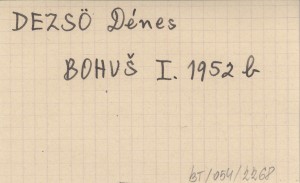 DEZSÖ Dénes
BOHUŠ I. 1952 b
BT/054/2268